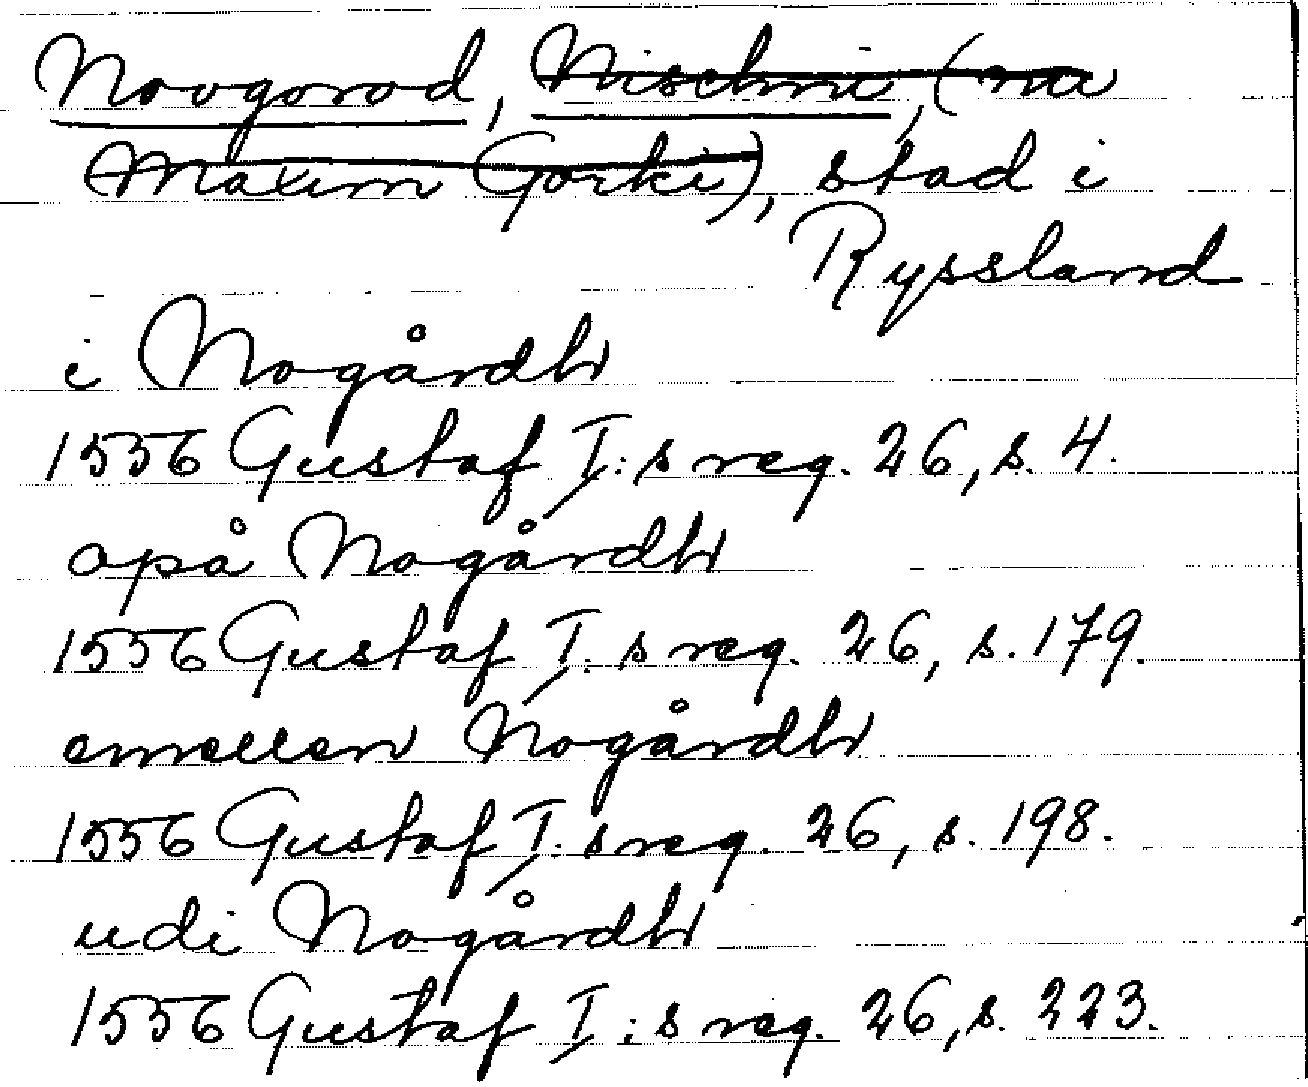 Novgorod, Nischni, (nu
Maxim Gorki), stad i
Ryssland
i Nogårdh
1556 Gustaf I:s reg. 26, s. 4.
opå Nogårdh
1556 Gustaf I:s reg. 26, s. 179.
emellen Nogårdh
1556 Gustaf I:s reg. 26, s. 198.
udi Nogårdh
1556 Gustaf I:s reg. 26, s. 223.